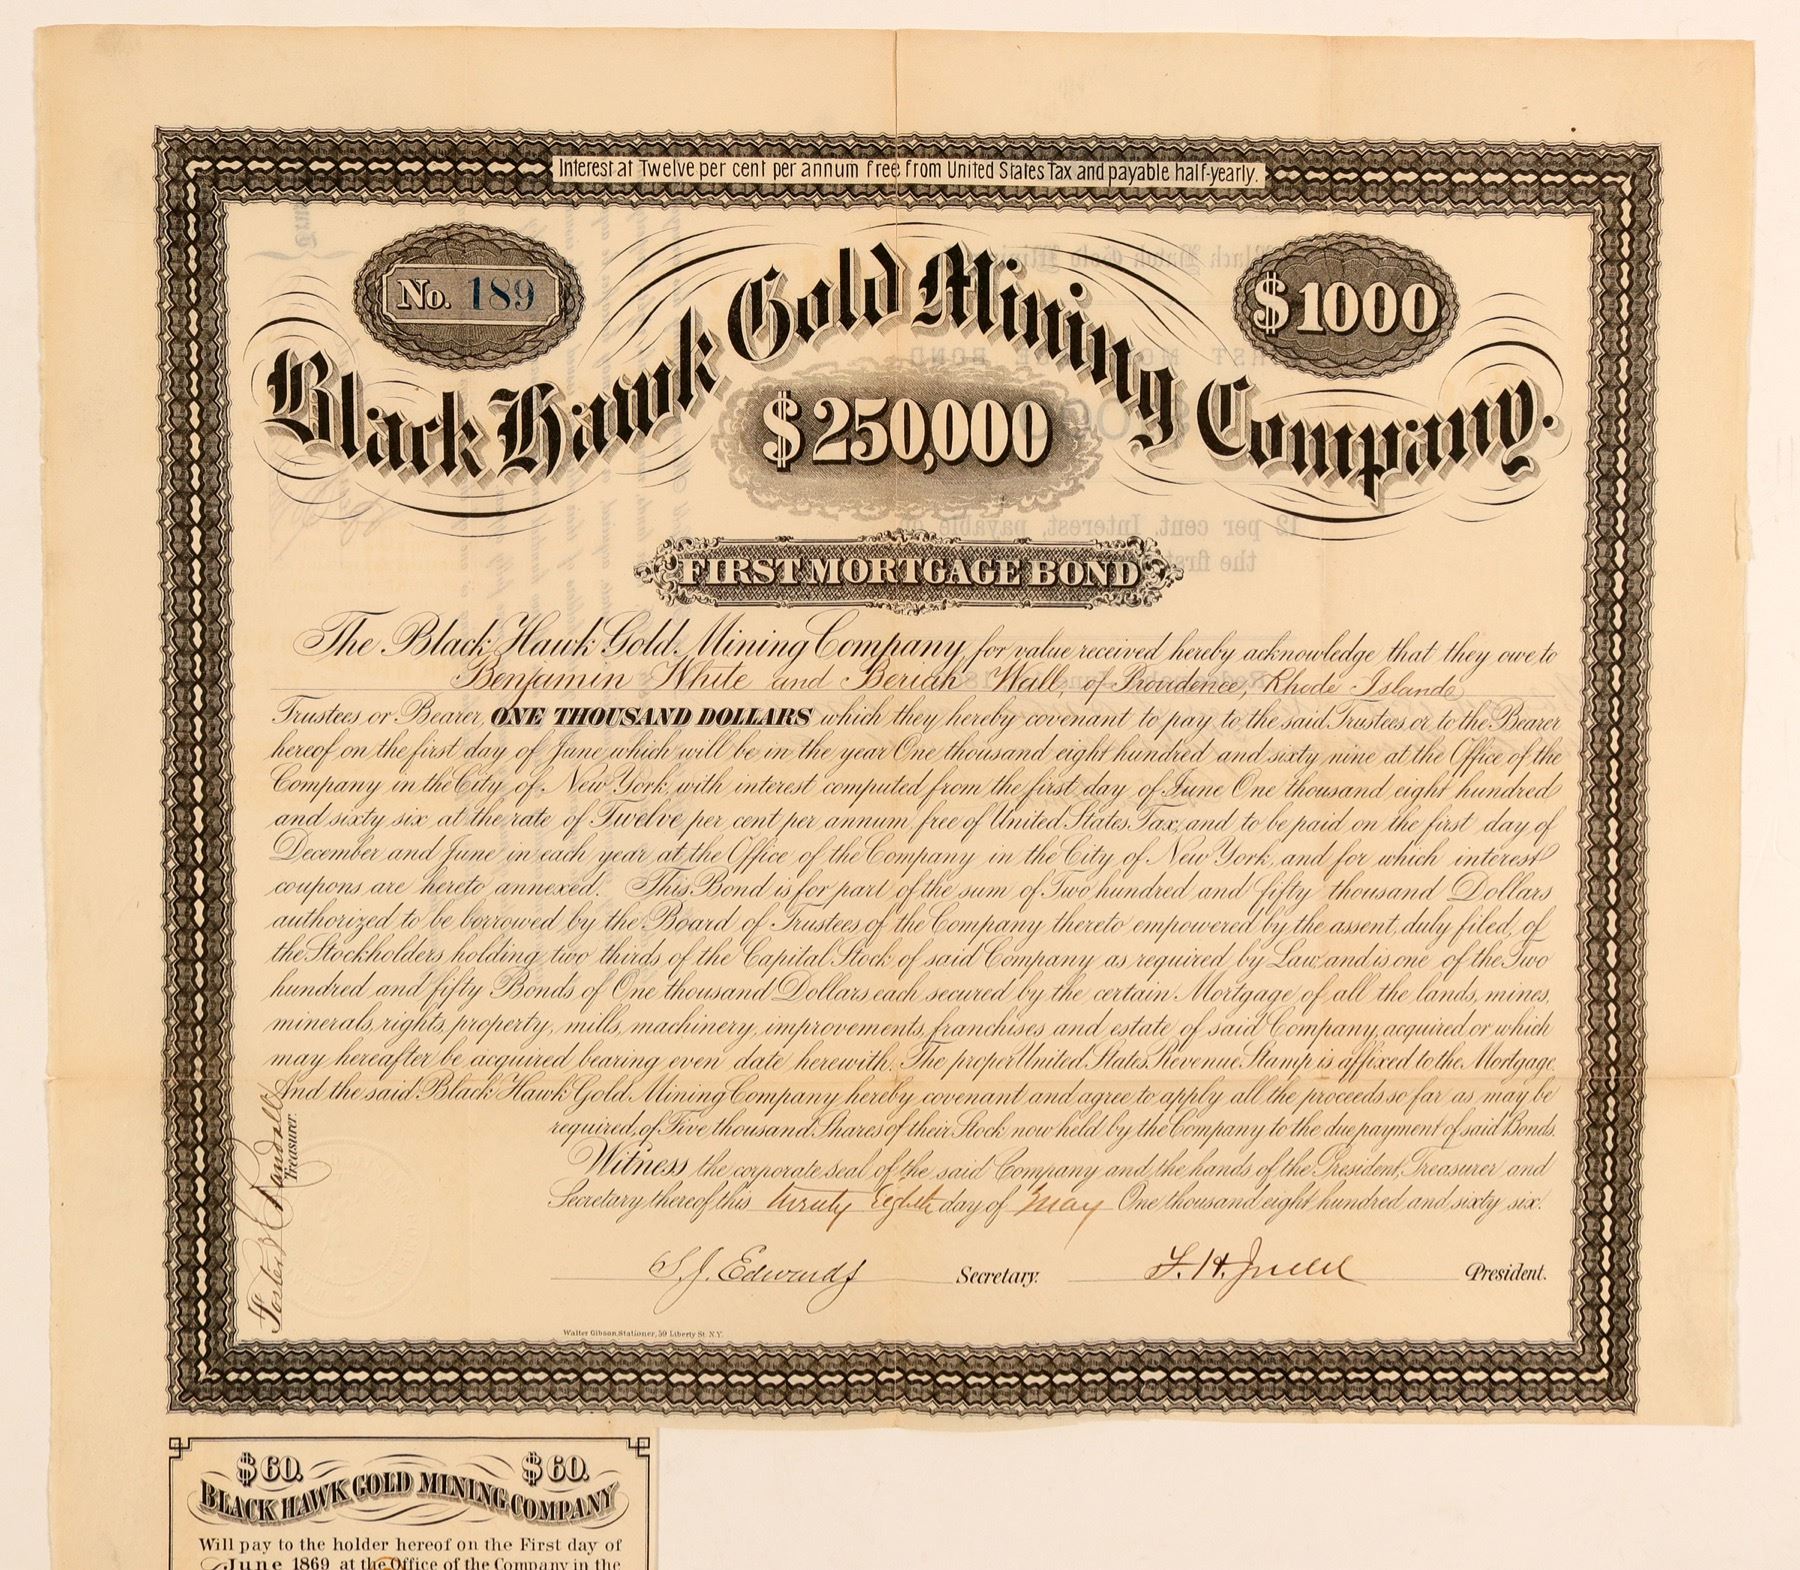 Interest at Twelve per cent per annum free from United States Tax and payable half-yearly.
No. 189
$1000
Black Hawk Gold Mining Company.
$250,000
FIRST MORTGAGE BOND
The Black Hawk Gold Mining Company for value received hereby acknowledge that they owe to
Benjamin White and Beriah Wall, of Providence, Rhode Island
Trustees or Bearer, ONE THOUSAND DOLLARS which they hereby covenant to pay to the said Trustees or to the Bearer
hereof on the first day of June which will be in the year One thousand eight hundred and sixty nine at the Office of the
Company in the City of New York, with interest computed from the first day of June One thousand eight hundred
and sixty six at the rate of Twelve per cent per annum, free of United States Tax, and to be paid on the first day of
December and June in each year at the Office of the Company in the City of New York, and for which interest
coupons are hereto annexed. This Bond is for part of the sum of Two hundred and fifty thousand Dollars
authorized to be borrowed by the Board of Trustees of the Company thereto empowered by the assent, duly filed, of
the Stockholders holding two thirds of the Capital Stock of said Company as required by Law, and is one of the Two
hundred and fifty Bonds of One thousand Dollars each secured by the certain Mortgage of all the lands, mines,
minerals, rights, property, mills, machinery, improvements, franchises and estate of said Company, acquired or which
may hereafter be acquired bearing even date herewith. The proper United States Revenue Stamp is affixed to the Mortgage.
And the said Black Hawk Gold Mining Company hereby covenant and agree to apply all the proceeds so far as may be
required, of Five thousand Shares of their Stock now held by the Company to the due payment of said Bonds.
Witness the corporate seal of the said Company and the hands of the President, Treasurer and
Secretary thereof this twenty Eighth day of May One thousand eight hundred and sixty six.
S. J. Edwards Secretary. F. H. Judd President.
Treasurer.
Walter Gibson, Stationer, 59 Liberty St. N.Y.
$60. $60.
BLACK HAWK GOLD MINING COMPANY
Will pay to the holder hereof on the First day of
June 1869 at the Office of the Company in the